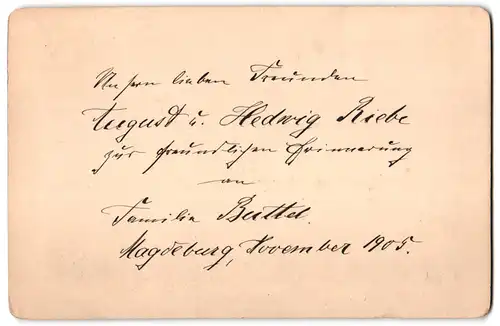 Unsern lieben Freunden
August u. Hedwig Riebe
zur freundlichen Erinnerung
an
Familie Bertel.
Magdeburg, November 1905.